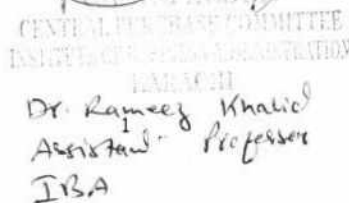 CENTRAL PURCHASE COMMITTEE
INSTITUTE OF BUSINESS ADMINISTRATION
KARACHI
Dr. Rameez Khalid
1
Assistant Professor
IBA